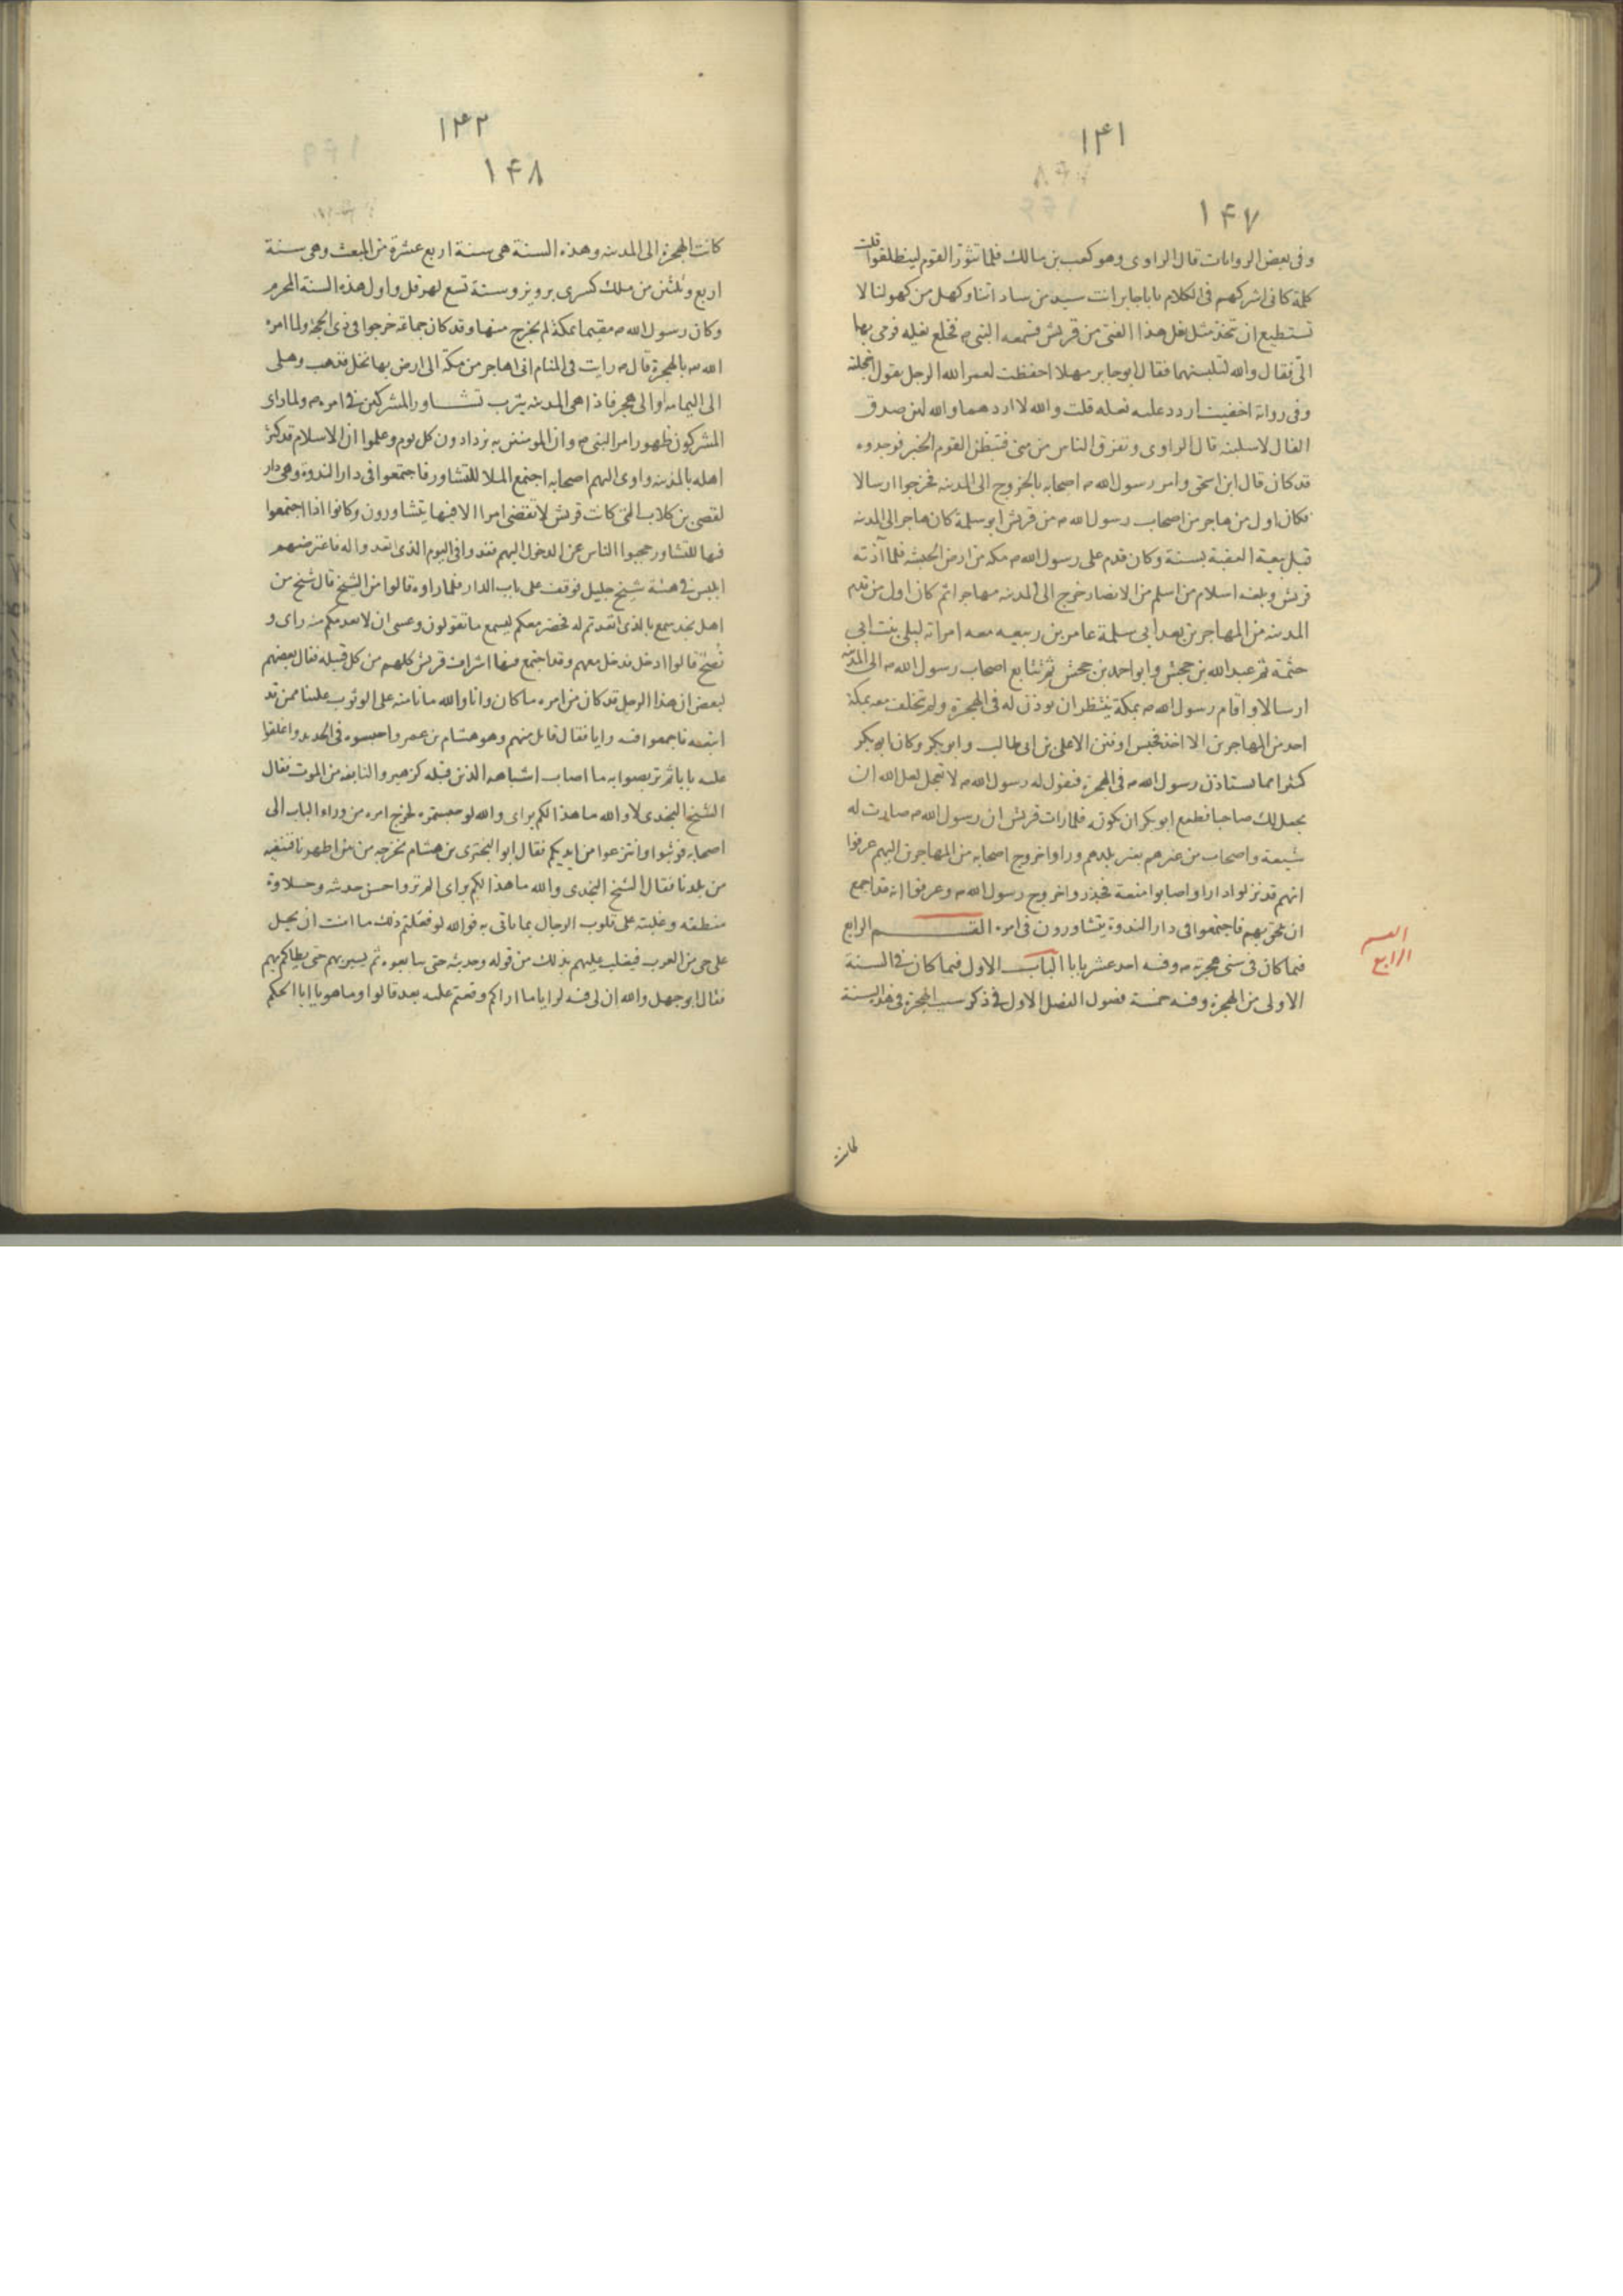 ١٤١
١٤٧
وفى بعض الروايات قال الراوى وهو كعب بن مالك فلما تثور القوم لينطلقوا قلت
كلمة كانى اشركهم فى الكلام يا باجابر انت سيد من ساداتنا وكهل من كهولنا لا
تستطيع ان تتخذ مثل نعل هذا الفتى من قريش فسمعه النبى ص فخلع نعليه فرمى بها
الى فقال والله لتلبسنهما فقال ابو جابر مهلا احفظت لعمر الله الرجل يقول اخجلته
وفى رواية اخفيت اردد عليه نعله قلت والله لا اردهما والله لئن صدق
الفال لاسلبنه قال الراوى وتفرق الناس من منى فتبطن القوم الخبر فوجدوه
قد كان قال ابن اسحق وامر رسول الله ص اصحابه بالخروج الى المدينه فخرجوا ارسالا
فكان اول من هاجر من اصحاب رسول الله ص من قريش ابو سلمة كان هاجر الى المدينه
قبل بيعة العقبة بسنة وكان قدم على رسول الله ص مكه من ارض الحبشه فلما آذته
قريش وبلغه اسلام من اسلم من الانصار خرج الى المدينه مهاجرا ثم كان اول من قدم
المدينه من المهاجرين بعد ابى سلمة عامر بن ربيعه معه امراته ليلى بنت ابي
حثمة ثم عبد الله بن جحش وابو احمد بن جحش ثم تتابع اصحاب رسول الله ص الى المدينه
ارسالا واقام رسول الله ص بمكة ينتظر ان يوذن له فى الهجرة ولم تخلف معه بمكة
احد من المهاجرين الا اخذ فحبس او فتن الا على بن ابى طالب وابو بكر وكان ابو بكر
كثيرا مما يستاذن رسول الله ص فى الهجرة فيقول له رسول الله ص لا تعجل لعل الله ان
يجعل لك صاحبا فطمع ابو بكر ان يكونه فلما رات قريش ان رسول الله ص صارت له
شيعة واصحاب من غيرهم بغير بلدهم وراوا خروج اصحابه من المهاجرين اليهم عرفوا
انهم قد نزلوا دارا واصابوا منعة فحذروا خروج رسول الله ص وعرفوا انه قد اجمع
ان يلحق بهم فاجتمعوا فى دار الندوة يتشاورون فى امره القسم الرابع
فيما كان فى سنى هجرته ص وفيه احد عشر بابا الباب الاول فيما كان فى السنة
الاولى من الهجرة وفيه خمسة فصول الفصل الاول فى ذكر سبب الهجرة فى هذه السنة
القسم
الرابع
كانت
١٤٢
١٤٨
كانت الهجرة الى المدينه وهذه السنة هى سنة اربع عشرة من المبعث وهى سنة
اربع وثلثين من ملك كسرى برويز وسنة تسع لهرقل واول هذه السنة المحرم
وكان رسول الله ص مقيما بمكة لم يخرج منها وقد كان جماعة خرجوا فى ذى الحجة ولما امره
الله ص بالهجرة قال ص رايت فى المنام انى اهاجر من مكة الى ارض بها نخل فذهب وهلى
الى اليمامه او الى هجر فاذا هى المدينه يثرب تشاور المشركين فى امره ص ولما راى
المشركون ظهور امر النبى ص وان المومنين به يزدادون كل يوم وعلموا ان الاسلام قد كثر
اهله بالمدينه واوى اليهم اصحابه اجتمع الملا للتشاور فاجتمعوا فى دار الندوة وهى دار
لقصى بن كلاب التى كانت قريش لا تقضى امرا الا فيها يتشاورون وكانوا اذا اجتمعوا
فيها للتشاور حجبوا الناس عن الدخول اليهم فغدوا فى اليوم الذى اتعدوا له فاعترضهم
ابليس فى هيئة شيخ جليل فوقف على باب الدار فلما راوه قالوا من الشيخ قال شيخ من
اهل نجد سمع بالذى اتعدتم له فحضر معكم ليسمع ما تقولون وعسى ان لا يعدمكم منه راى و
نصح قالوا ادخل فدخل معهم وقد اجتمع فيها اشراف قريش كلهم من كل قبيله فقال بعضهم
لبعض ان هذا الرجل قد كان من امره ما كان وانا والله ما نامنه على الوثوب علينا ممن قد
اتبعه فاجمعوا فيه رايا فقال قايل منهم وهو هشام بن عمرو احبسوه فى الحديد واغلقوا
عليه بابا ثم تربصوا به ما اصاب اشباهه الذين قبله كزهير والنابغه من الموت فقال
الشيخ النجدى لا والله ما هذا لكم براى والله لو حبستموه لخرج امره من وراء الباب الى
اصحابه فوثبوا وانتزعوا من ايديكم فقال ابو البخترى بن هشام نخرجه من بين اظهرنا فننفيه
من بلدنا فقال الشيخ النجدى والله ما هذا لكم براى الم تروا حسن حديثه وحلاوة
منطقه وغلبته على قلوب الرجال بما ياتى به فوالله لو فعلتم ذلك ما امنت ان يحل
على حى من العرب فيغلب عليهم بذلك من قوله وحديثه حتى يبايعوه ثم يسير بهم حتى يطاكم بهم
فقال ابو جهل والله ان لى فيه لرايا ما اراكم وقعتم عليه بعد قالوا وما هو يا ابا الحكم